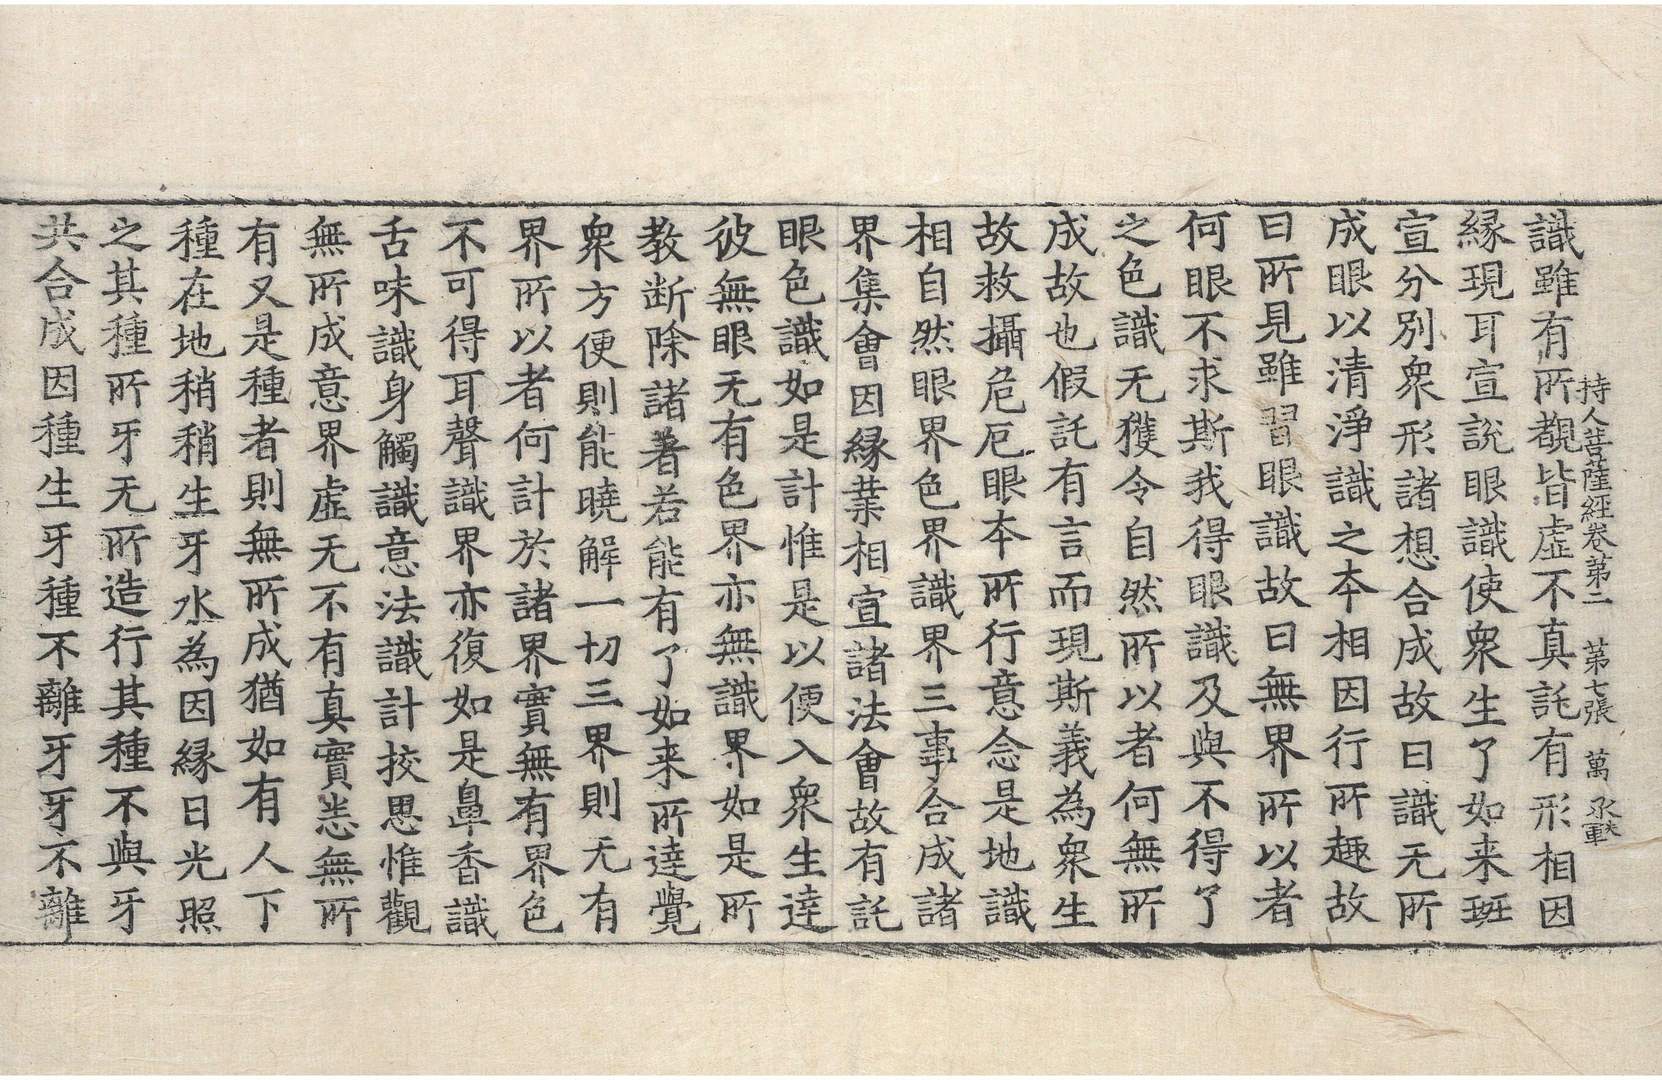 持人菩薩經卷第二　第七張　萬　永軍
識雖有所覩皆虛不真託有形相因
縁現耳宣説眼識使衆生了如来班
宣分別衆形諸想合成故曰識无所
成眼以清淨識之本相因行所趣故
曰所見雖習眼識故曰無界所以者
何眼不求斯我得眼識及與不得了
之色識无獲令自然所以者何無所
成故也假託有言而現斯義為衆生
故救攝危厄眼本所行意念是地識
相自然眼界色界識界三事合成諸
界集會因縁業相宣諸法會故有託
眼色識如是計惟是以便入衆生達
彼無眼无有色界亦無識界如是所
教断除諸著若能有了如来所達覺
衆方便則能曉解一切三界則无有
界所以者何計於諸界實無有界色
不可得耳聲識界亦復如是鼻香識
舌味識身觸識意法識計挍思惟觀
無所成意界虛无不有真實悉無所
有又是種者則無所成猶如有人下
種在地稍稍生牙水為因縁日光照
之其種所牙无所造行其種不與牙
共合成因種生牙種不離牙牙不離